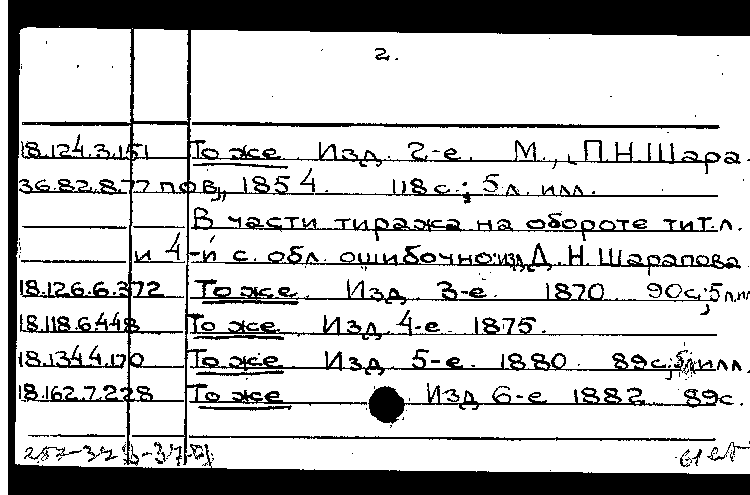 2.
18.124.3.151 То же Изд. 2-е. М., П.Н.Шара-
36.82.8.77 пов, 1854. 118 с.; 5 л. илл.
В части тиража на обороте тит.л.
и 4-й с. обл. ошибочно: изд. Д.Н.Шарапова
18.126.6.372 То же. Изд. 3-е. 1870 90с.; 5л.ил
18.118.6.448 То же Изд. 4-е. 1875.
18.134.4.170 То же Изд. 5-е. 1880. 89с.; 5л.илл.
18.162.7.228 То же Изд. 6-е 1882. 89с.